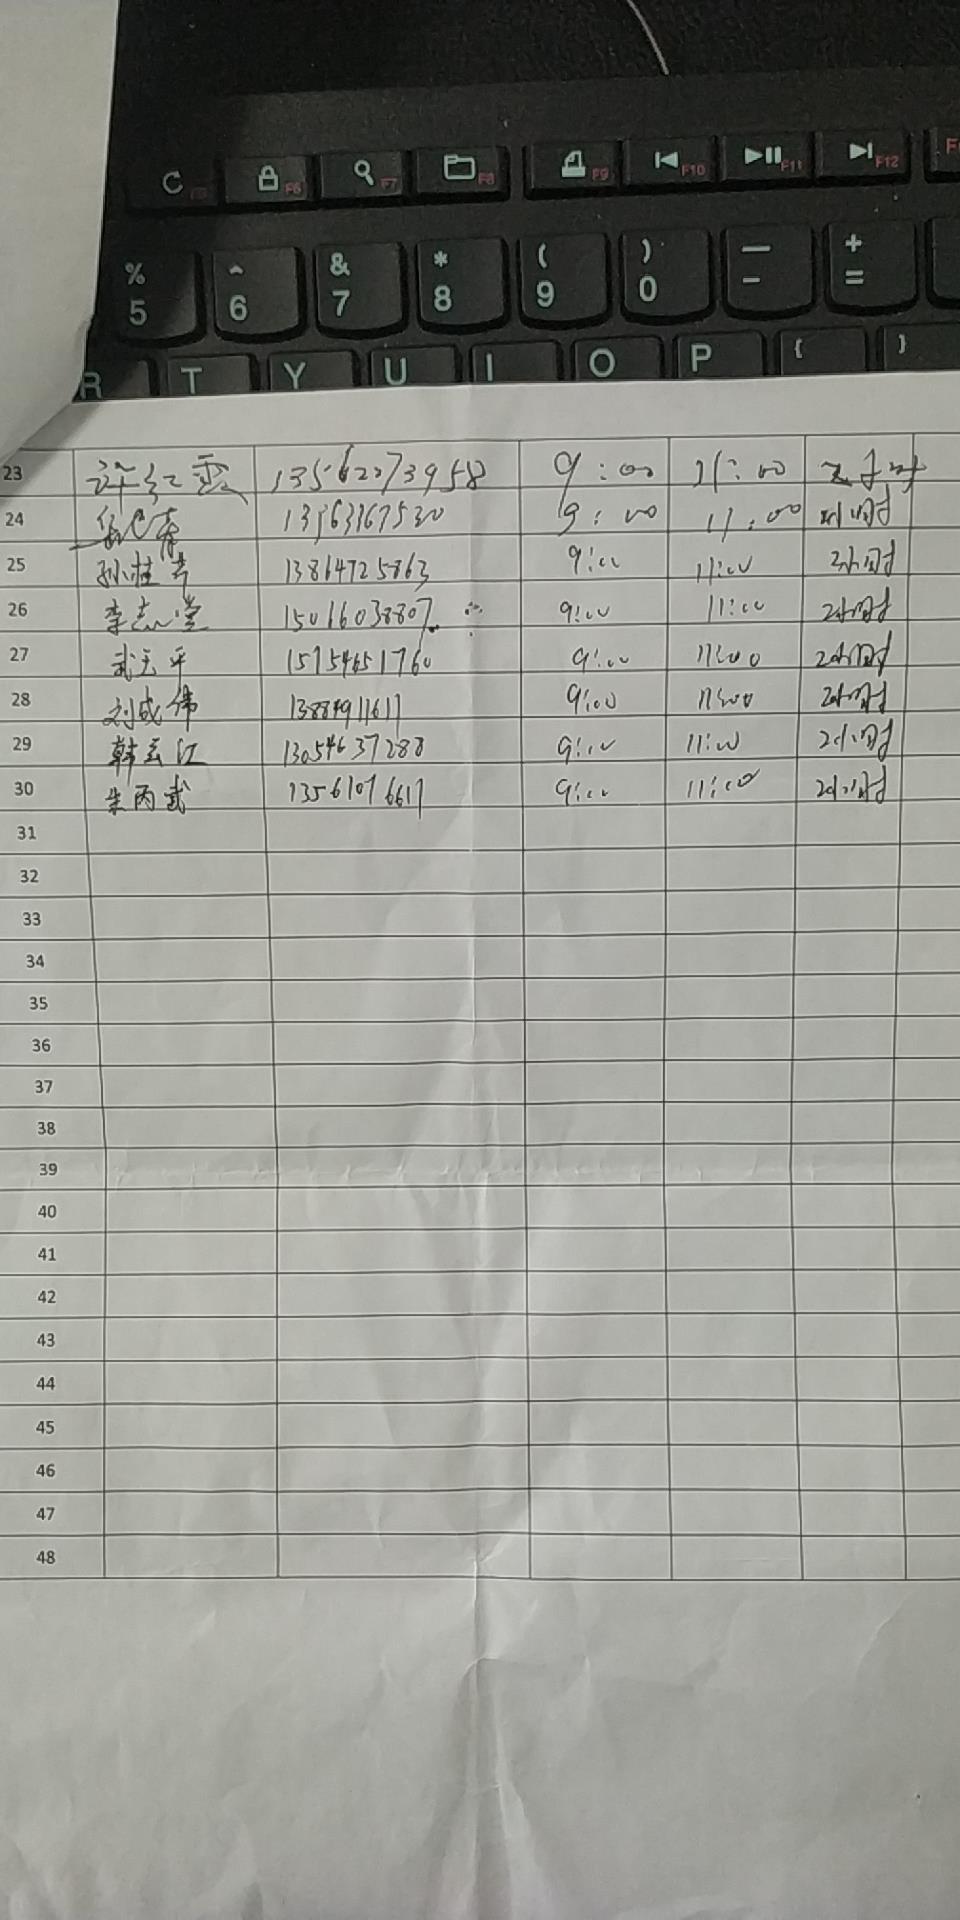 C F5 F6 F7 F8 F9 F10 F11 F12
% ^ & * ( ) — +
5 6 7 8 9 0 - =
R T Y U I O P { }
23 许红霞 13562273958 9:00 11:00 2小时
24 13963167530 9:00 11:00 2小时
25 孙桂芳 13864725863 9:00 11:00 2小时
26 李志堂 15016038807 9:00 11:00 2小时
27 武玉平 15754651760 9:00 11:00 2小时
28 刘成伟 9:00 11:00 2小时
29 韩云江 13054637288 9:00 11:00 2小时
30 朱丙武 13561076617 9:00 11:00 2小时
31
32
33
34
35
36
37
38
39
40
41
42
43
44
45
46
47
48